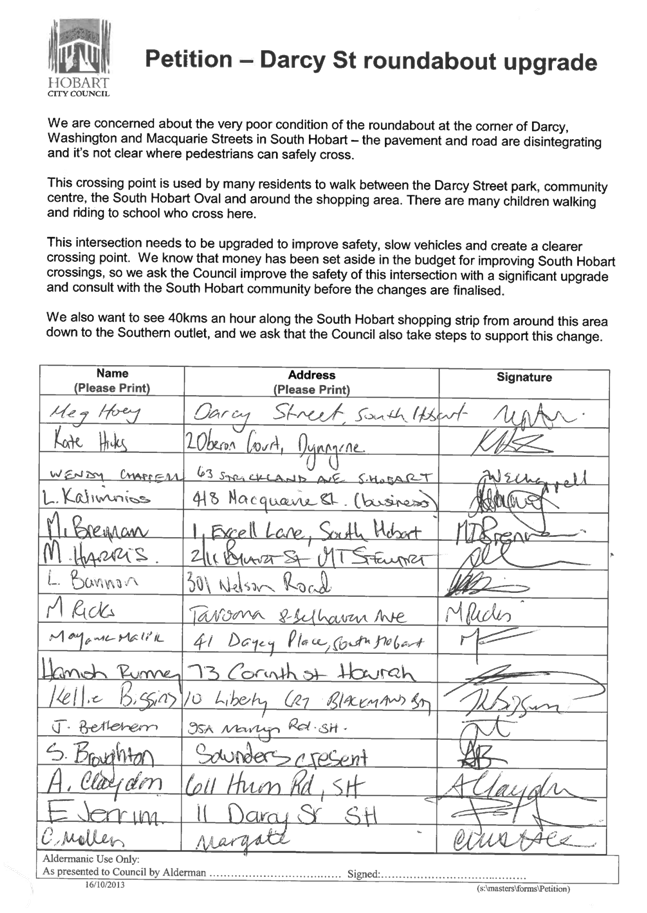 HOBART
CITY COUNCIL
Petition – Darcy St roundabout upgrade
We are concerned about the very poor condition of the roundabout at the corner of Darcy,
Washington and Macquarie Streets in South Hobart – the pavement and road are disintegrating
and it's not clear where pedestrians can safely cross.
This crossing point is used by many residents to walk between the Darcy Street park, community
centre, the South Hobart Oval and around the shopping area. There are many children walking
and riding to school who cross here.
This intersection needs to be upgraded to improve safety, slow vehicles and create a clearer
crossing point. We know that money has been set aside in the budget for improving South Hobart
crossings, so we ask the Council improve the safety of this intersection with a significant upgrade
and consult with the South Hobart community before the changes are finalised.
We also want to see 40kms an hour along the South Hobart shopping strip from around this area
down to the Southern outlet, and we ask that the Council also take steps to support this change.
Name Address Signature
(Please Print) (Please Print)
Meg Huey Darcy Street, South Hobart
Kate Hicks 2 Oberon Court, Dynnyrne
WENDY CHAPPELL 63 STRICKLAND AVE S.HOBART WSChappell
L. Kalimnios 418 Macquarie St. (business)
M. Brennan 1 Excell Lane, South Hobart
M. HARRIS. St
L. Bannon 301 Nelson Road
M Ricks Taroona 8 Belhaven Ave M Ricks
41 Place, South Hobart
Hamish 73 Corinth st Howrah
Kellie 10 Liberty CRT BLACKMANS BAY
J. Betlehem 95A Rd. SH.
S. Broughton Saunders cresent
A. Claydon Huon Rd, SH A Claydon
E Jerrim. 11 Darcy St SH
C. Margate
Aldermanic Use Only:
As presented to Council by Alderman .................................... Signed:....................................
16/10/2013 (s:\masters\forms\Petition)